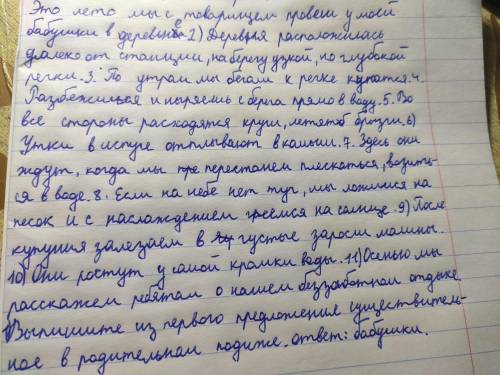 Это лето мы с товарищем провели у моей
бабушки в деревне.2) Деревня расположилась
далеко от станции, на берегу узкой, но глубокой
речки.3. По утрам мы бегаем к речке купатся.4.
Разбежишься и ныряешь с берега прямо в воду.5. Во
все стороны расходятся круги, летят брызги.6)
Утки в испуге отплывают в камыши.7. Здесь они
ждут, когда мы перестанем плескаться, возить-
ся в воде.8. Если на небе нет туч, мы ложимся на
песок и с наслаждением греемся на солнце.9) После
купания залезаем в густые заросли малины.
10) Они ростут у самой кромки воды.11) Осенью мы
расскажем ребятам о нашем беззаботном отдыхе
Выпишите из первого предложения существитель-
ное в родительном падиже. ответ: бабушки.